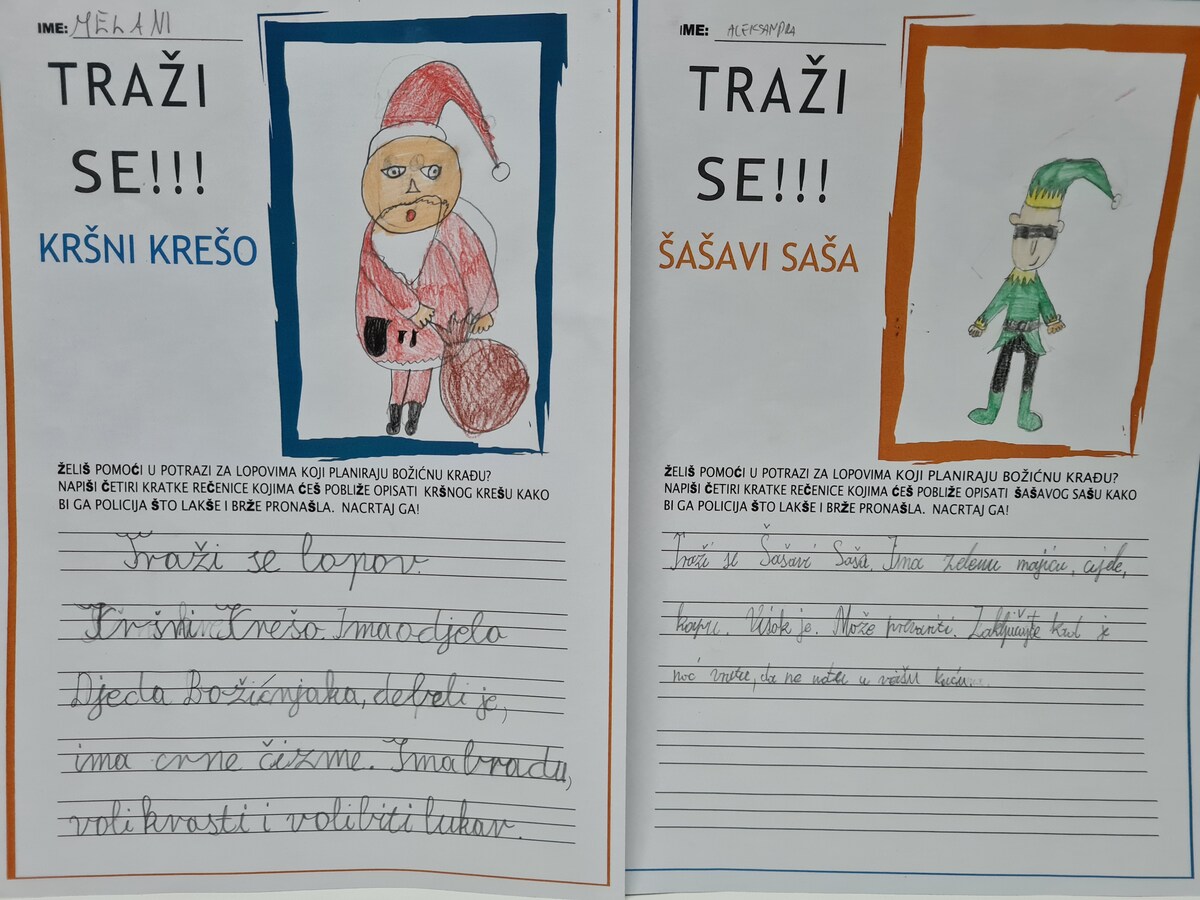 IME: MELANI
TRAŽI
SE!!!
KRŠNI KREŠO
ŽELIŠ POMOĆI U POTRAZI ZA LOPOVIMA KOJI PLANIRAJU BOŽIĆNU KRAĐU?
NAPIŠI ČETIRI KRATKE REČENICE KOJIMA ĆEŠ POBLIŽE OPISATI KRŠNOG KREŠU KAKO
BI GA POLICIJA ŠTO LAKŠE I BRŽE PRONAŠLA. NACRTAJ GA!
Traži se lopov
Kršni Krešo. Ima odjelo
Djeda Božićnjaka, debeli je,
ima crne čizme. Ima bradu,
voli krasti i voli biti lukav.
IME: ALEKSANDRA
TRAŽI
SE!!!
ŠAŠAVI SAŠA
ŽELIŠ POMOĆI U POTRAZI ZA LOPOVIMA KOJI PLANIRAJU BOŽIĆNU KRAĐU?
NAPIŠI ČETIRI KRATKE REČENICE KOJIMA ĆEŠ POBLIŽE OPISATI ŠAŠAVOG SAŠU KAKO
BI GA POLICIJA ŠTO LAKŠE I BRŽE PRONAŠLA. NACRTAJ GA!
Traži se Šašavi Saša. Ima zelenu majicu, cijele,
kapu. Visok je. Može prevariti. Zaključajte kad je
noć vrata, da ne uđe u vašu kuću.